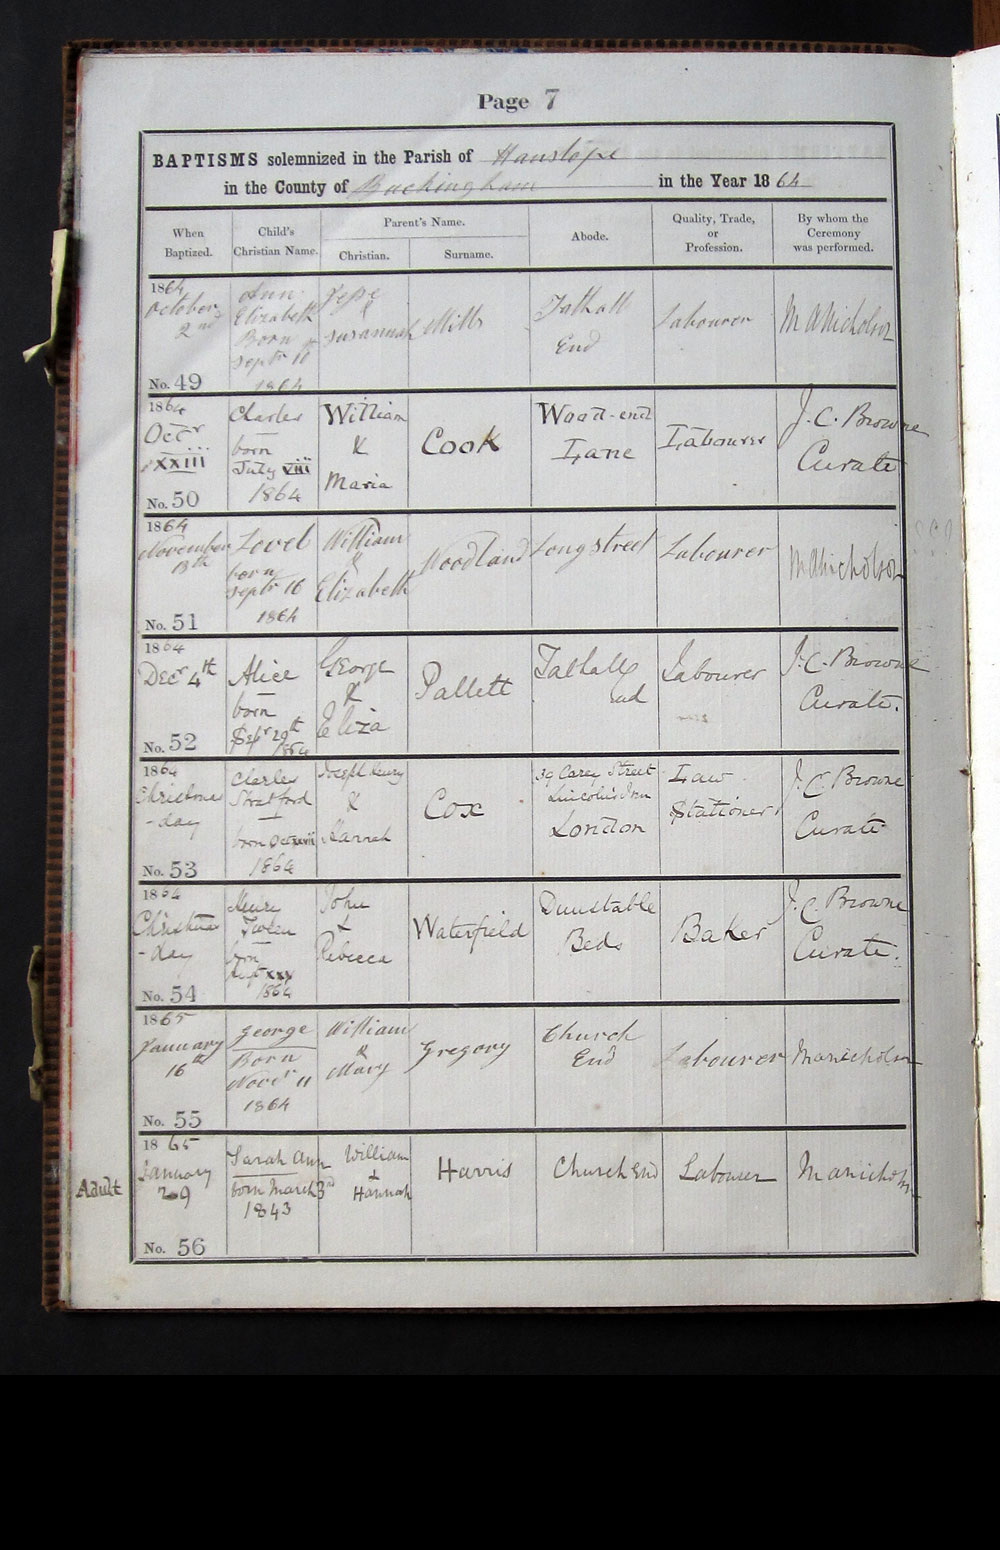 Page 7
BAPTISMS solemnized in the Parish of Hanslope
in the County of Buckingham in the Year 1864
When Baptized.
Child's Christian Name.
Parent's Name.
Christian.
Surname.
Abode.
Quality, Trade, or Profession.
By whom the Ceremony was performed.
1864
October
2nd
No. 49
Ann
Elizabeth
Born
Septr 10
1864
Jesse
&
Susannah
Mills
Tathall
End
Labourer
M A Nicholson
1864
Octr
xxiii
No. 50
Charles
born
July viii
1864
William
&
Maria
Cook
Wood-end
Lane
Labourer
J. C. Browne
Curate
1864
November
13th
No. 51
Lovel
born
Septr 16
1864
William
&
Elizabeth
Woodland
Longstreet
Labourer
M A Nicholson
1864
Decr 4th
No. 52
Alice
born
Sepr 20th
1864
George
&
Eliza
Pallett
Tathall
End
Labourer
J. C. Browne
Curate.
1864
Christmas
-day
No. 53
Charles
Stratford
born Oct xxvii
1864
Joseph Henry
&
Hannah
Cox
39 Carey Street
Lincoln's Inn
London
Law
Stationer
J. C. Browne
Curate
1864
Christmas
-day
No. 54
born
xxx
1864
John
&
Rebecca
Waterfield
Dunstable
Beds
Baker
J. C. Browne
Curate.
1865
January
16th
No. 55
George
Born
Novr 11
1864
William
&
Mary
Gregory
Church
End
Labourer
M A Nicholson
Adult
1865
January
29
No. 56
Sarah Ann
born March 3rd
1843
William
&
Hannah
Harris
Church End
Labourer
M A Nicholson